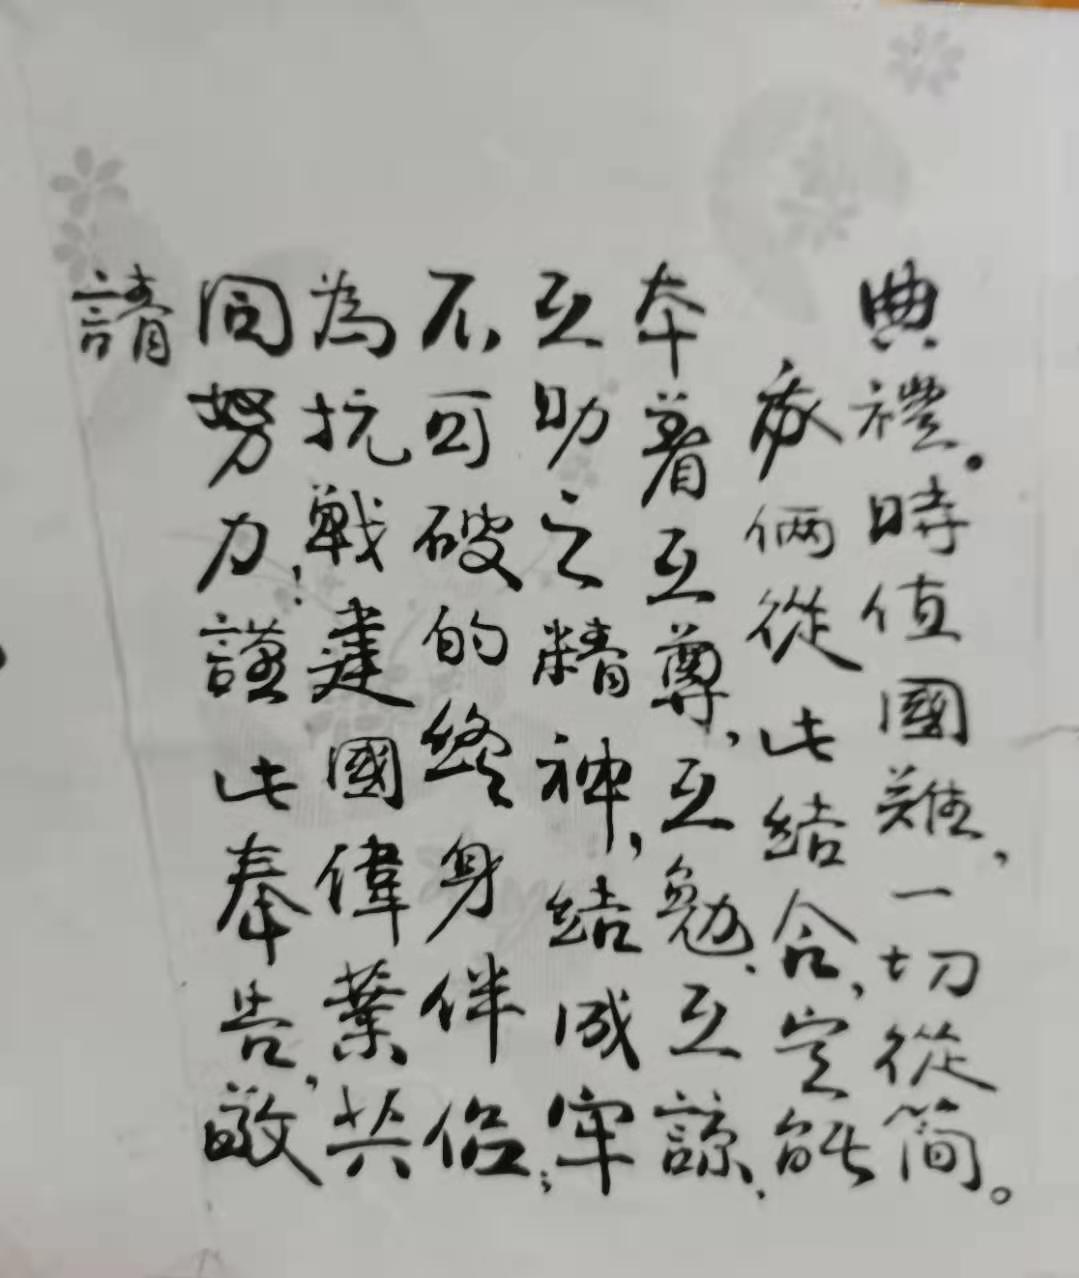 典禮。時值國難，一切從簡。
我倆從此結合，定能
本着互尊，互勉、互諒、
互助之精神，結成牢
不可破的終身伴侣；
為抗戰建國偉業共
同努力！謹此奉告，敬
請